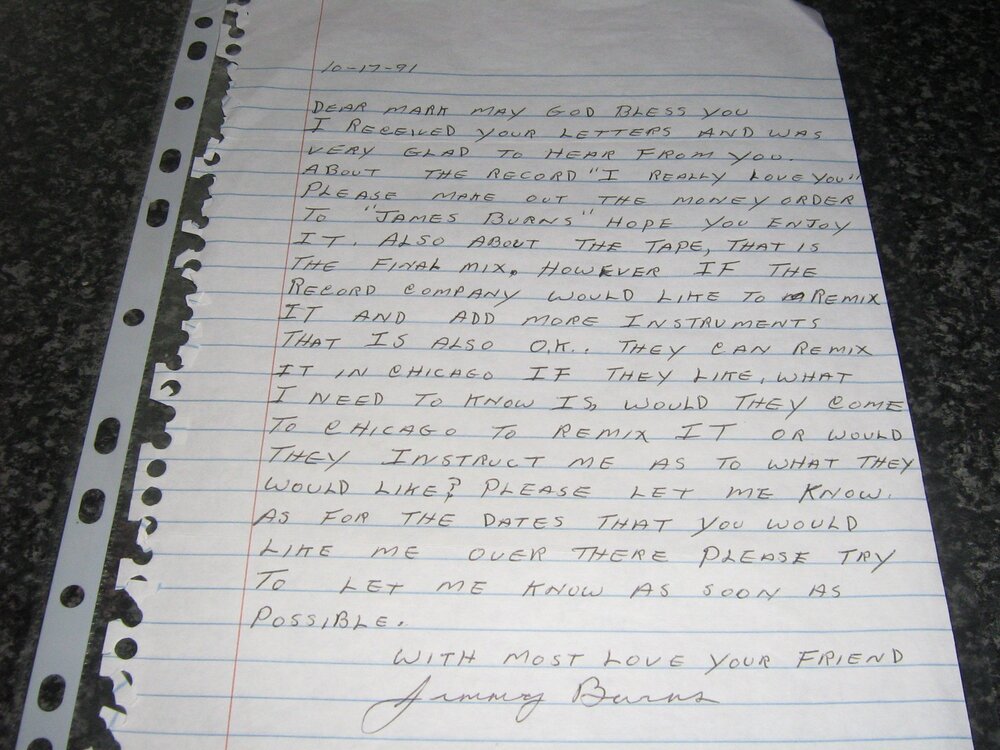 10-17-91
DEAR MARK MAY GOD BLESS YOU
I RECEIVED YOUR LETTERS AND WAS
VERY GLAD TO HEAR FROM YOU.
ABOUT THE RECORD "I REALLY LOVE YOU"
PLEASE MAKE OUT THE MONEY ORDER
TO "JAMES BURNS" HOPE YOU ENJOY
IT. ALSO ABOUT THE TAPE, THAT IS
THE FINAL MIX. HOWEVER IF THE
RECORD COMPANY WOULD LIKE TO REMIX
IT AND ADD MORE INSTRUMENTS
THAT IS ALSO O.K.. THEY CAN REMIX
IT IN CHICAGO IF THEY LIKE, WHAT
I NEED TO KNOW IS, WOULD THEY COME
TO CHICAGO TO REMIX IT OR WOULD
THEY INSTRUCT ME AS TO WHAT THEY
WOULD LIKE? PLEASE LET ME KNOW.
AS FOR THE DATES THAT YOU WOULD
LIKE ME OVER THERE PLEASE TRY
TO LET ME KNOW AS SOON AS
POSSIBLE.
WITH MOST LOVE YOUR FRIEND
Jimmy Burns